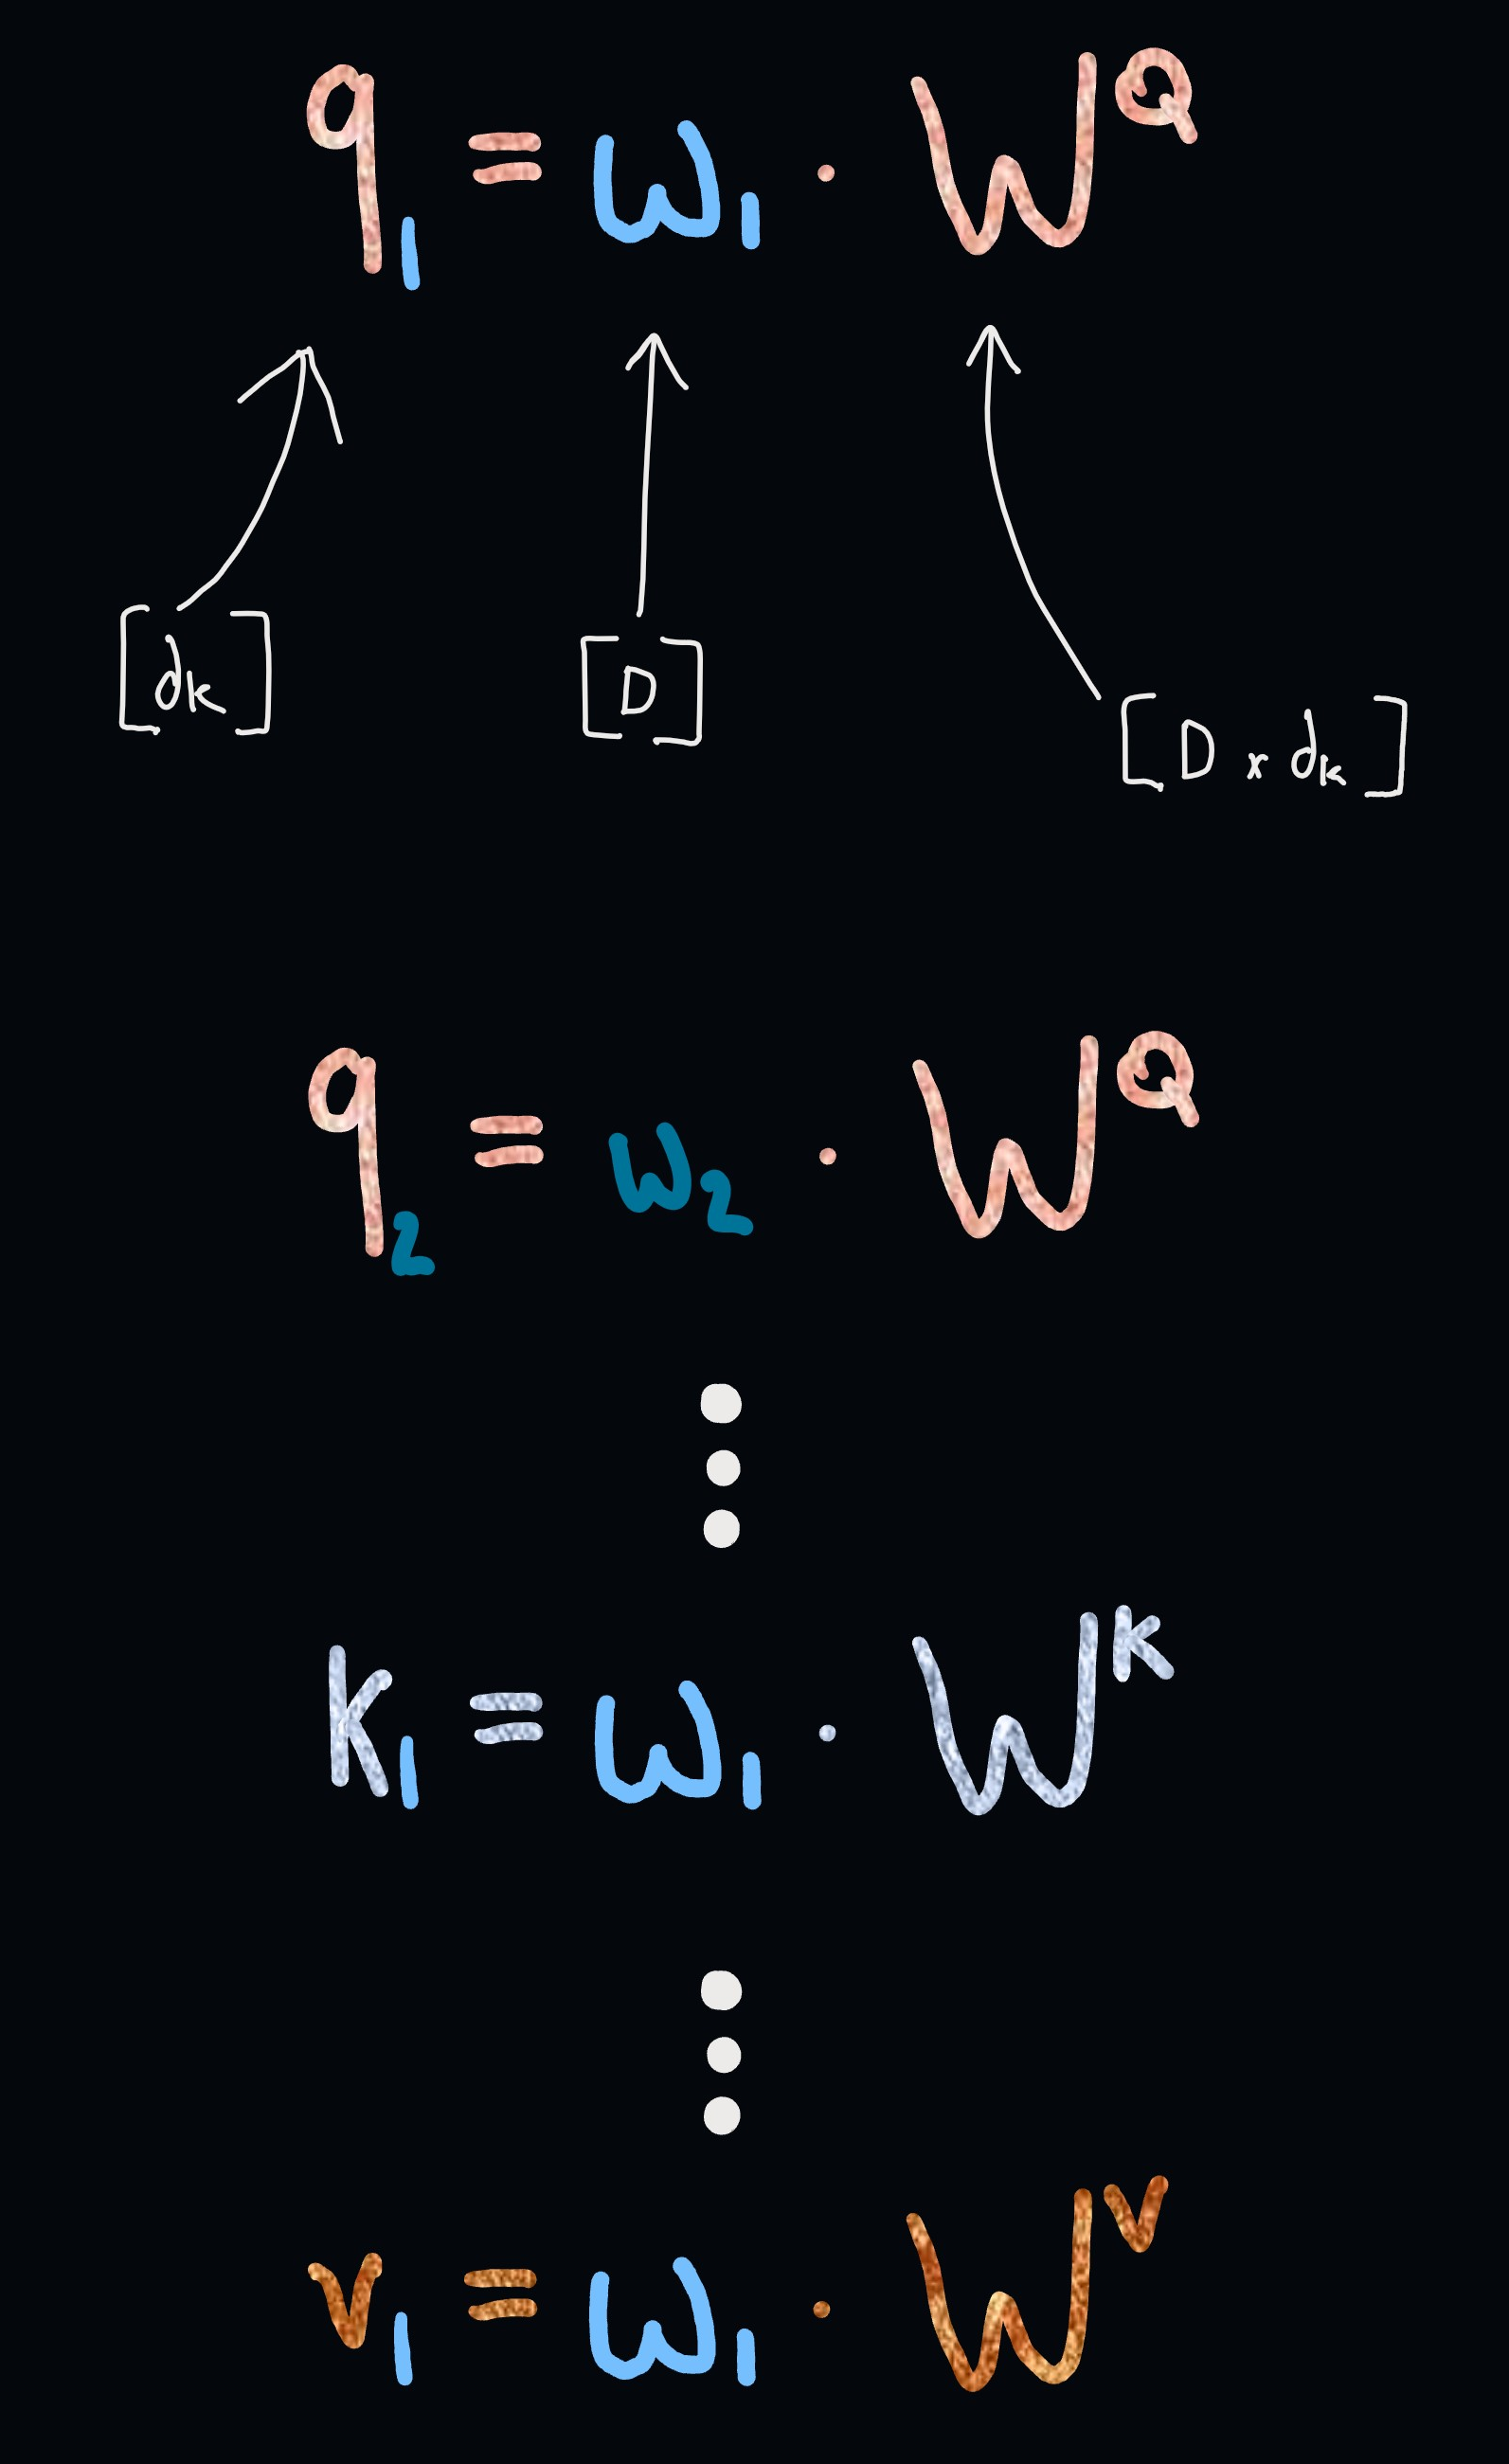 q₁ = ω₁ · W^Q
[dₖ] [D] [D × dₖ]
q₂ = ω₂ · W^Q
k₁ = ω₁ · W^K
v₁ = ω₁ · W^V